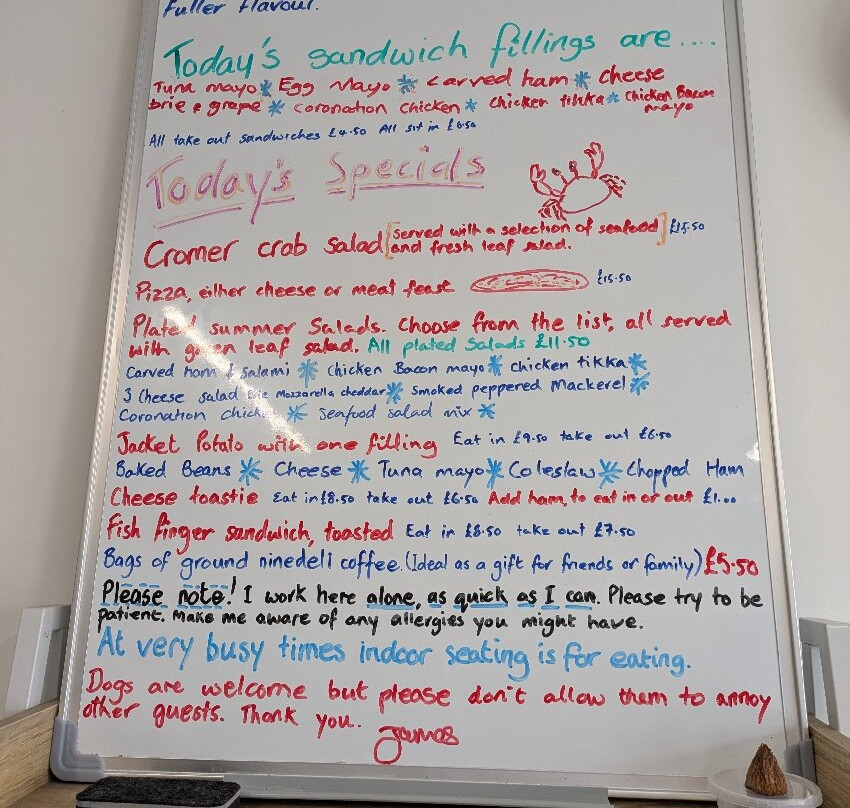 Fuller flavour.
Today's sandwich fillings are....
Tuna mayo * Egg Mayo * Carved ham * Cheese
brie & grape * Coronation Chicken * Chicken tikka * Chicken Bacon
mayo
All take out sandwiches £4.50 All sit in £6.50
Today's Specials
Cromer crab salad [served with a selection of seafood] £15.50
and fresh leaf salad.
Pizza, either cheese or meat feast £15.50
Plated summer Salads. Choose from the list, all served
with green leaf salad. All plated Salads £11.50
Carved ham & salami * Chicken Bacon mayo * chicken tikka *
3 Cheese salad Brie Mozzarella cheddar * Smoked peppered Mackerel *
Coronation chicken * Seafood salad mix *
Jacket Potato with one filling Eat in £9.50 take out £6.50
Baked Beans * Cheese * Tuna mayo * Coleslaw * Chopped Ham
Cheese toastie Eat in £8.50 take out £6.50 Add ham, to eat in or out £1.00
Fish finger sandwich, toasted Eat in £8.50 take out £7.50
Bags of ground ninedeli coffee. (Ideal as a gift for friends or family) £5.50
Please note! I work here alone, as quick as I can. Please try to be
patient. Make me aware of any allergies you might have.
At very busy times indoor seating is for eating.
Dogs are welcome but please don't allow them to annoy
other guests. Thank you.
James